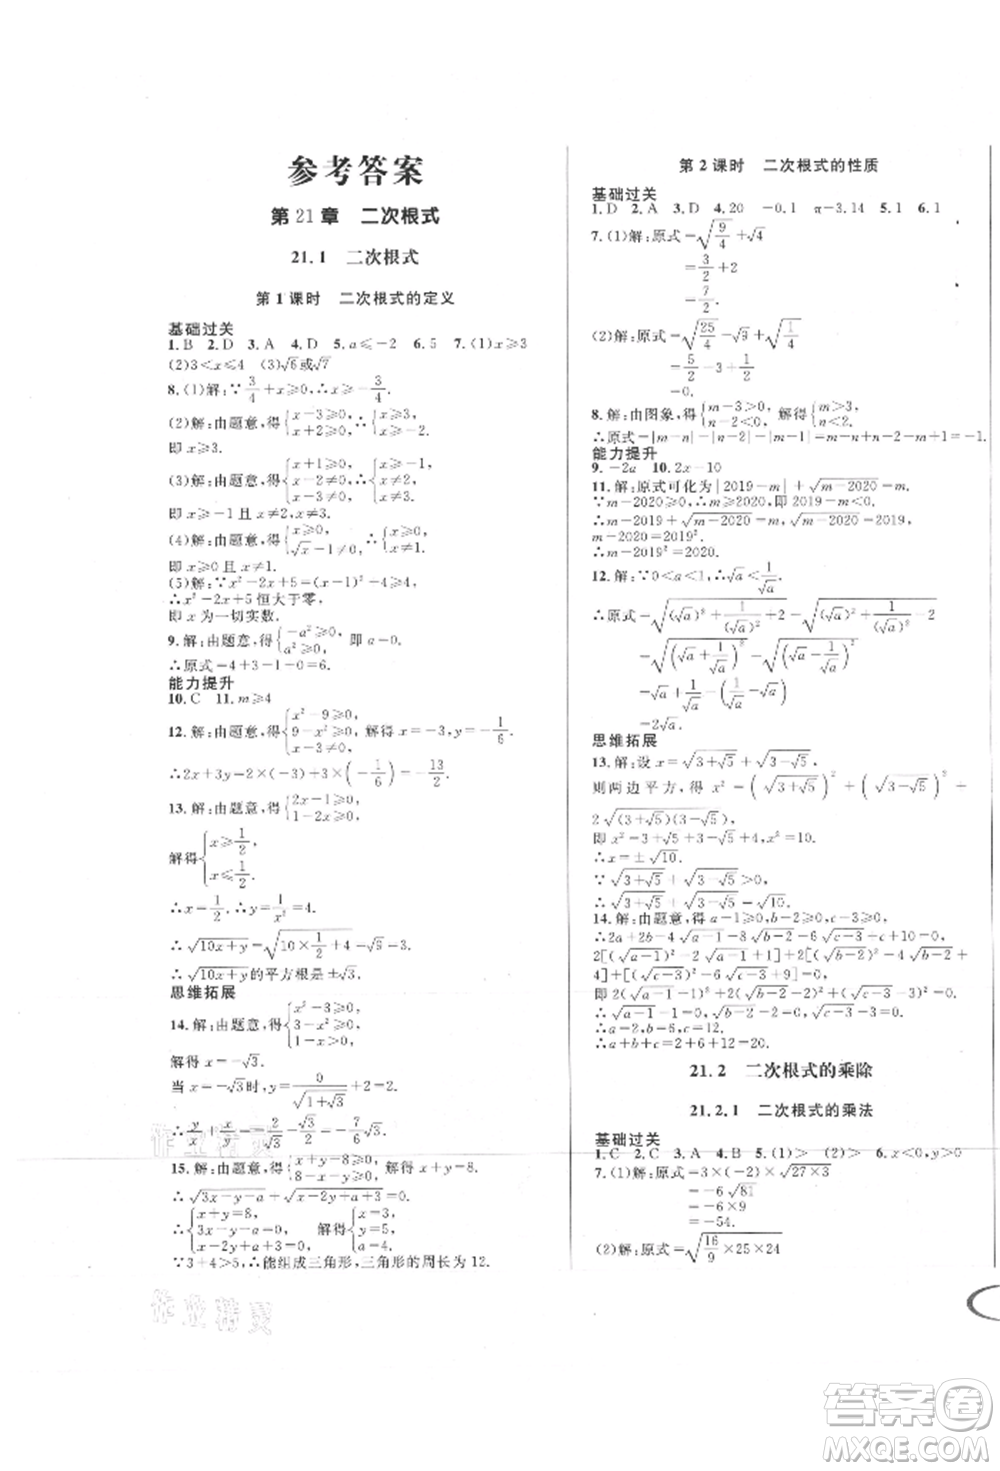 参考答案
第 21 章 二次根式
21.1 二次根式
第 1 课时 二次根式的定义
基础过关
1.B 2.D 3.A 4.D 5.a≤-2 6.5 7.(1)x≥3
(2)3<x≤4 (3)√6或√7
8.(1)解:∵3/4+x≥0,∴x≥-3/4.
(2)解:由题意,得{x-3≥0, x+2≥0, ∴{x≥3, x≥-2.
即 x≥3.
(3)解:由题意,得{x+1≥0, x-2≠0, ∴{x≥-1, x≠2.
即 x≥-1 且 x≠2.
(4)解:由题意,得{x≥0, √x-1≠0, ∴{x≥0, x≠1.
即x≥0 且 x≠1.
(5)解:∵x²-2x+5=(x-1)²+4,
∴x²-2x+5 恒大于零.
即 x 为一切实数.
9.解:由题意,得{-a²≥0, a²≥0, 即 a=0.
∴原式=4+3-1+0=6.
能力提升
10.C 11.m≥4
12.解:由题意,得{x²-9≥0, 9-x²≥0, x-3≠0, 解得 x=-3,y=-1/6.
∴2x+3y=2×(-3)+3×(-1/6)=-13/2.
13.解:由题意,得{2x-1≥0, 1-2x≥0,
解得{x≥1/2, x≤1/2.
∴x=1/2,y=1/x²=4.
∴√(10x+y)=√(10×1/2+4)=3.
∴√(10x+y)的平方根是±√3.
思维拓展
14.解:由题意,得{x²-3≥0, 3-x²≥0, x-√3≠0.
解得 x=-√3.
15.解:由题意,得{x+y-8≥0, 8-x-y≥0,
∴√(3x-y-a)+√(x-2y+a+3)=0.
∴{x+y=8, 3x-y-a=0, x-2y+a+3=0, 解得{x=3, y=5, a=4.
∵3+4>5,∴能组成三角形,三角形的周长为 12.
第 2 课时 二次根式的性质
基础过关
1.D 2.A 3.D 4.20 -0.1 π-3.14 5.1 6.1
7.(1)解:原式=√(9/4)+√4
=3/2+2
=7/2.
(2)解:原式=√(25/4)-√9+√(1/4)
=5/2-3+1/2
=0.
8.解:由图象,得{m-3>0, n-2<0, 解得{m>3, n<2.
∴原式=|m-n|-|n-2|-|m-1|=m-n+n-2-m+1=-1.
能力提升
9.-2a 10.2x-10
11.解:原式可化为|2019-m|+√(m-2020)=m.
∵m-2020≥0,∴m≥2020,即 2019-m<0.
∴m-2019+√(m-2020)=m,√(m-2020)=2019,
m-2020=2019².
∴m-2019²=2020.
12.解:∵0<a<1,∴√a<1/√a.
∴原式=√((√a)²+1/(√a)²+2)-√((√a)²+1/(√a)²-2)
=√((√a+1/√a)²)-√((√a-1/√a)²)
=√a+1/√a-1/√a+√a
=2√a.
思维拓展
13.解:设 x=√(3+√5)+√(3-√5),
则两边平方,得 x²=(√(3+√5))²+(√(3-√5))²+
2√((3+√5)(3-√5)),
即 x²=3+√5+3-√5+4,x²=10.
∴x=±√10.
∵√(3+√5)+√(3-√5)>0,
∴√(3+√5)+√(3-√5)=√10.
14.解:由题意,得 a-1≥0,b-2≥0,c-3≥0,
即 2(√(a-1)-1)²+2(√(b-2)-1)²+(√(c-3)-3)²=0.
∴a=2,b=3,c=12.
21.2 二次根式的乘除
21.2.1 二次根式的乘法
基础过关
1.C 2.C 3.A 4.B 5.(1)> (2)> 6.x<0,y>0
7.(1)解:原式=3×(-2)×√(27×3)
=-6√81
=-6×9
=-54.
(2)解:原式=√(16/9×25×24)
作业精灵
作业精灵
答案卷
MXQE.COM